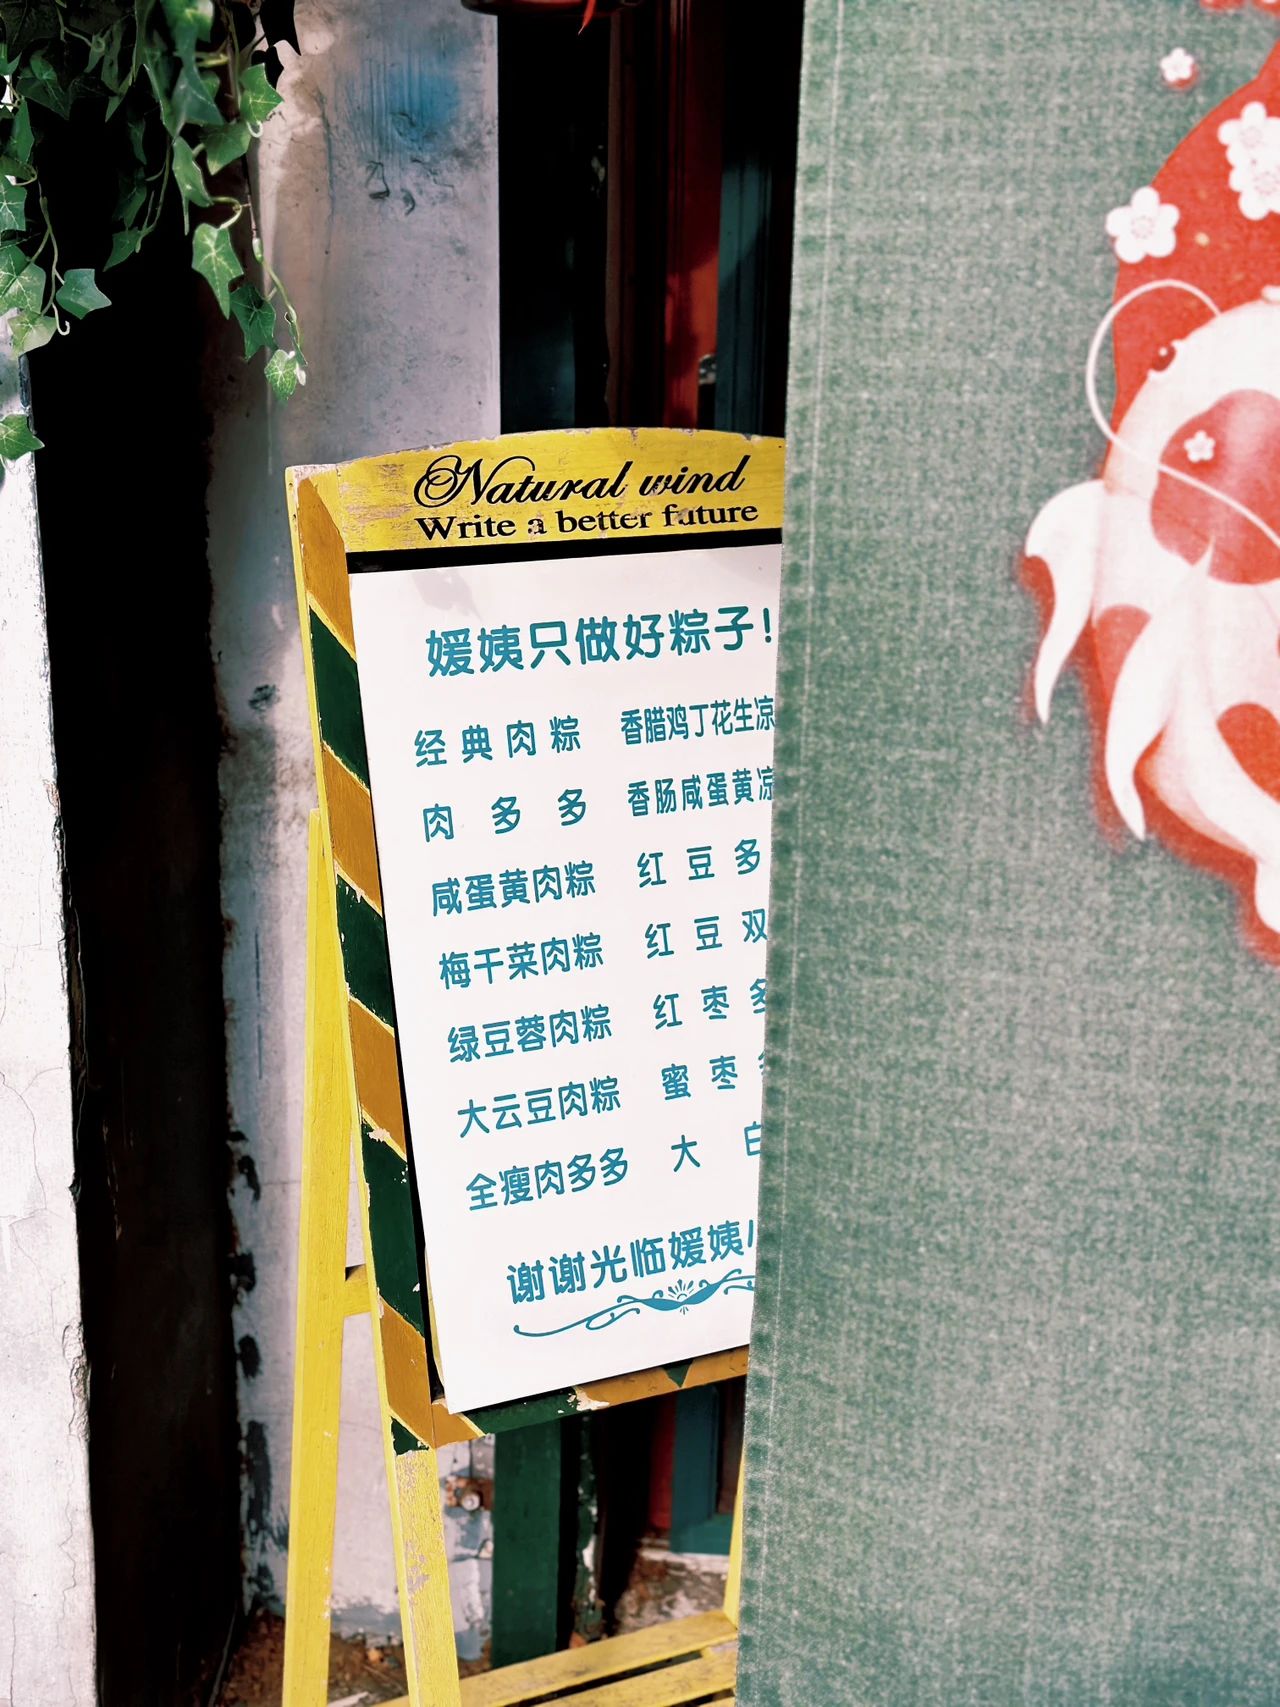 Natural wind
Write a better future
媛姨只做好粽子!
经典肉粽 香腊鸡丁花生凉
肉多多 香肠咸蛋黄凉
咸蛋黄肉粽 红豆多
梅干菜肉粽 红豆双
绿豆蓉肉粽 红枣多
大云豆肉粽 蜜枣
全瘦肉多多 大白
谢谢光临媛姨